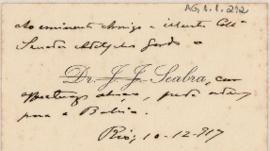 AG 1.1.292
Ao eminente Amigo e illustre Coll
Senador Adolpho Gordo
Dr. J. J. Seabra, com
affectuoso abraço, pede
para a Bahia.
Rio, 10-12-917